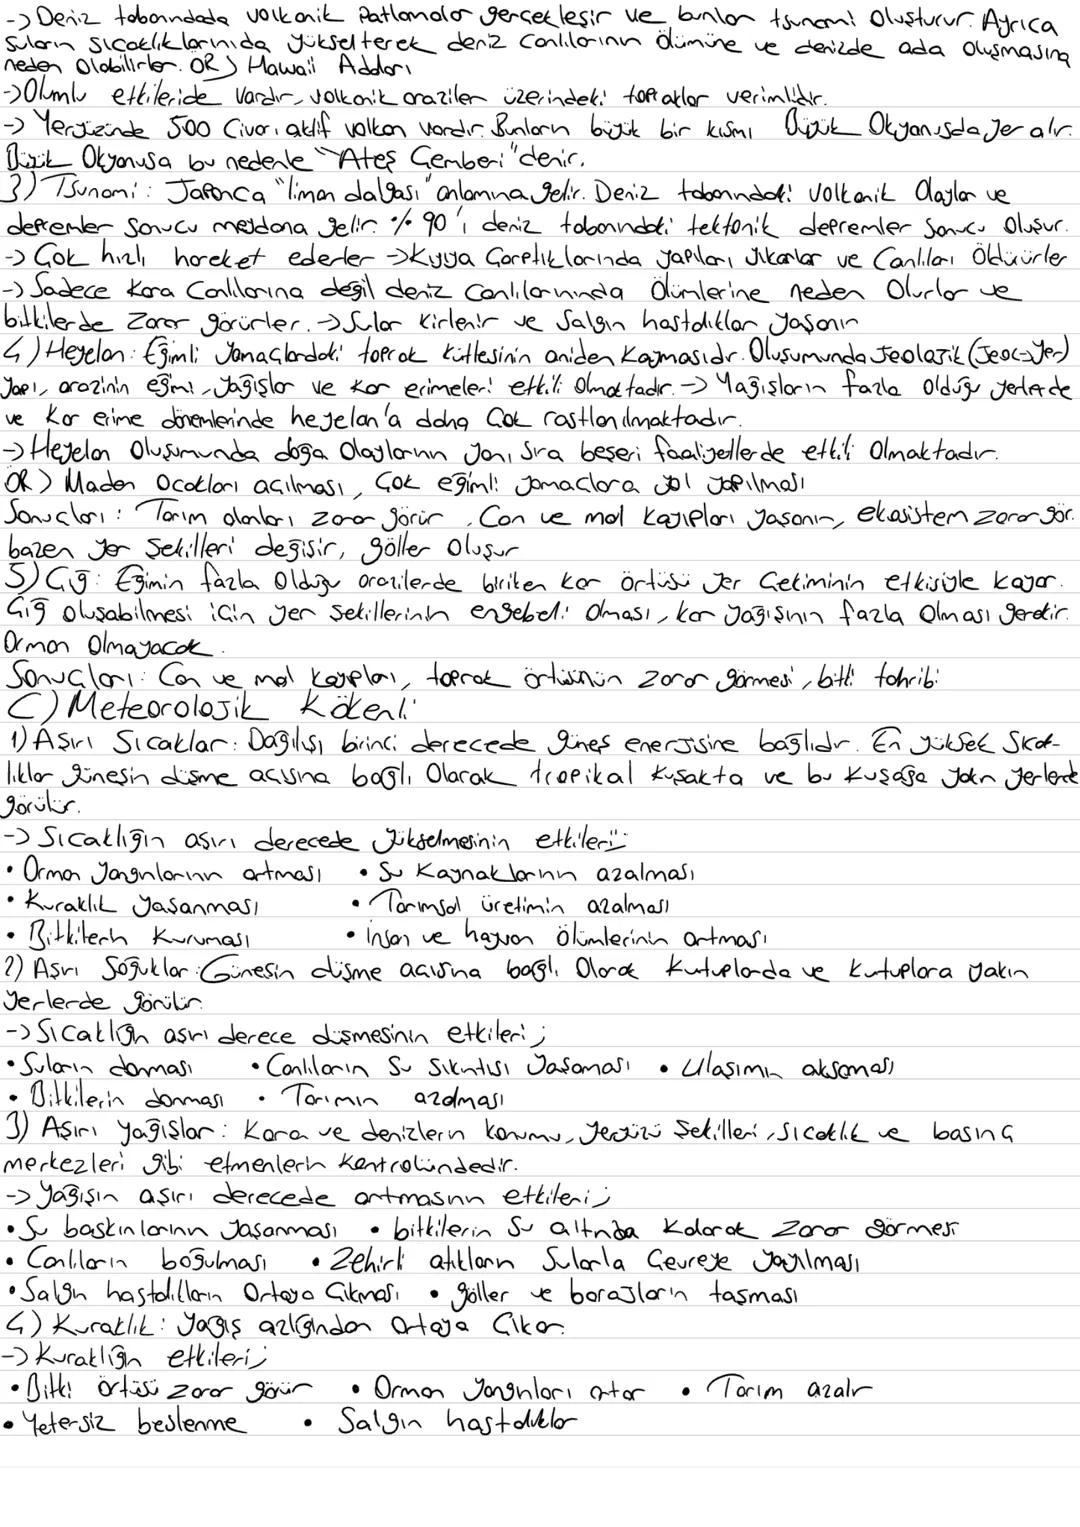 -> Deniz tabanındada volkanik patlamalar gerçekleşir ve bunlar tsunami oluşturur. Ayrıca
suların sıcaklıklarınıda yükselterek deniz canlılarının ölümüne ve denizde ada oluşmasına
neden olabilirler. ÖR) Hawaii Adaları
->Olumlu etkileride vardır, volkanik araziler üzerindeki topraklar verimlidir.
-> Yeryüzünde 500 civarı aktif volkan vardır. Bunların büyük bir kısmı Büyük Okyanusda yer alır.
Büyük Okyanusa bu nedenle "Ateş Çemberi" denir.
3) Tsunami: Japonca "liman dalgası" anlamına gelir. Deniz tabanındaki volkanik olaylar ve
depremler sonucu meydana gelir. % 90'ı deniz tabanındaki tektonik depremler sonucu oluşur.
-> Çok hızlı hareket ederler -> Kıyıya çarptıklarında yapıları yıkarlar ve canlıları öldürürler
-> Sadece kara canlılarına değil deniz canlılarınında ölümlerine neden olurlar ve
bitkilerde zarar görürler. -> Sular kirlenir ve salgın hastalıklar yaşanır
4) Heyelan: Eğimli yamaçlardaki toprak kütlesinin aniden kaymasıdır. Oluşumunda jeolojik (Jeo=>Yer)
yapı, arazinin eğimi, yağışlar ve kar erimeleri etkili olmaktadır. -> Yağışların fazla olduğu yerlerde
ve kar erime dönemlerinde heyelan'a daha çok rastlanılmaktadır.
-> Heyelan oluşumunda doğa olaylarının yanı sıra beşeri faaliyetlerde etkili olmaktadır.
ÖR) Maden ocakları açılması, çok eğimli yamaçlara yol yapılması
Sonuçları: Tarım alanları zarar görür, Can ve mal kayıpları yaşanır, ekosistem zarar gör.
bazen yer şekilleri değişir, göller oluşur
5) Çığ: Eğimin fazla olduğu arazilerde biriken kar örtüsü yer çekiminin etkisiyle kayar.
Çığ oluşabilmesi için yer şekillerinin engebeli olması, kar yağışının fazla olması gerekir.
Orman olmayacak.
Sonuçları: Can ve mal kayıpları, toprak örtüsünün zarar görmesi, bitki tahribi
C) Meteorolojik Kökenli
1) Aşırı Sıcaklar: Dağılışı birinci derecede güneş enerjisine bağlıdır. En yüksek sıcak-
lıklar güneşin düşme açısına bağlı olarak tropikal kuşakta ve bu kuşağa yakın yerlerde
görülür.
-> Sıcaklığın aşırı derecede yükselmesinin etkileri;
• Orman yangınlarının artması • Su kaynaklarının azalması
• Kuraklık yaşanması • Tarımsal üretimin azalması
• Bitkilerin kuruması • insan ve hayvan ölümlerinin artması
2) Aşırı Soğuklar: Güneşin düşme açısına bağlı olarak kutuplarda ve kutuplara yakın
yerlerde görülür.
-> Sıcaklığın aşırı derece düşmesinin etkileri;
• Suların donması • Canlıların su sıkıntısı yaşaması • Ulaşımın aksaması
• Bitkilerin donması • Tarımın azalması
3) Aşırı yağışlar: Kara ve denizlerin konumu, yeryüzü şekilleri, sıcaklık ve basınç
merkezleri gibi etmenlerin kontrolündedir.
-> Yağışın aşırı derecede artmasının etkileri;
• Su baskınlarının yaşanması • bitkilerin su altında kalarak zarar görmesi
• Canlıların boğulması • Zehirli atıkların sularla çevreye yayılması
• Salgın hastalıkların ortaya çıkması • göller ve barajların taşması
4) Kuraklık: Yağış azlığından ortaya çıkar.
-> Kuraklığın etkileri;
• Bitki örtüsü zarar görür • Orman yangınları artar • Tarım azalır
• Yetersiz beslenme • Salgın hastalıklar